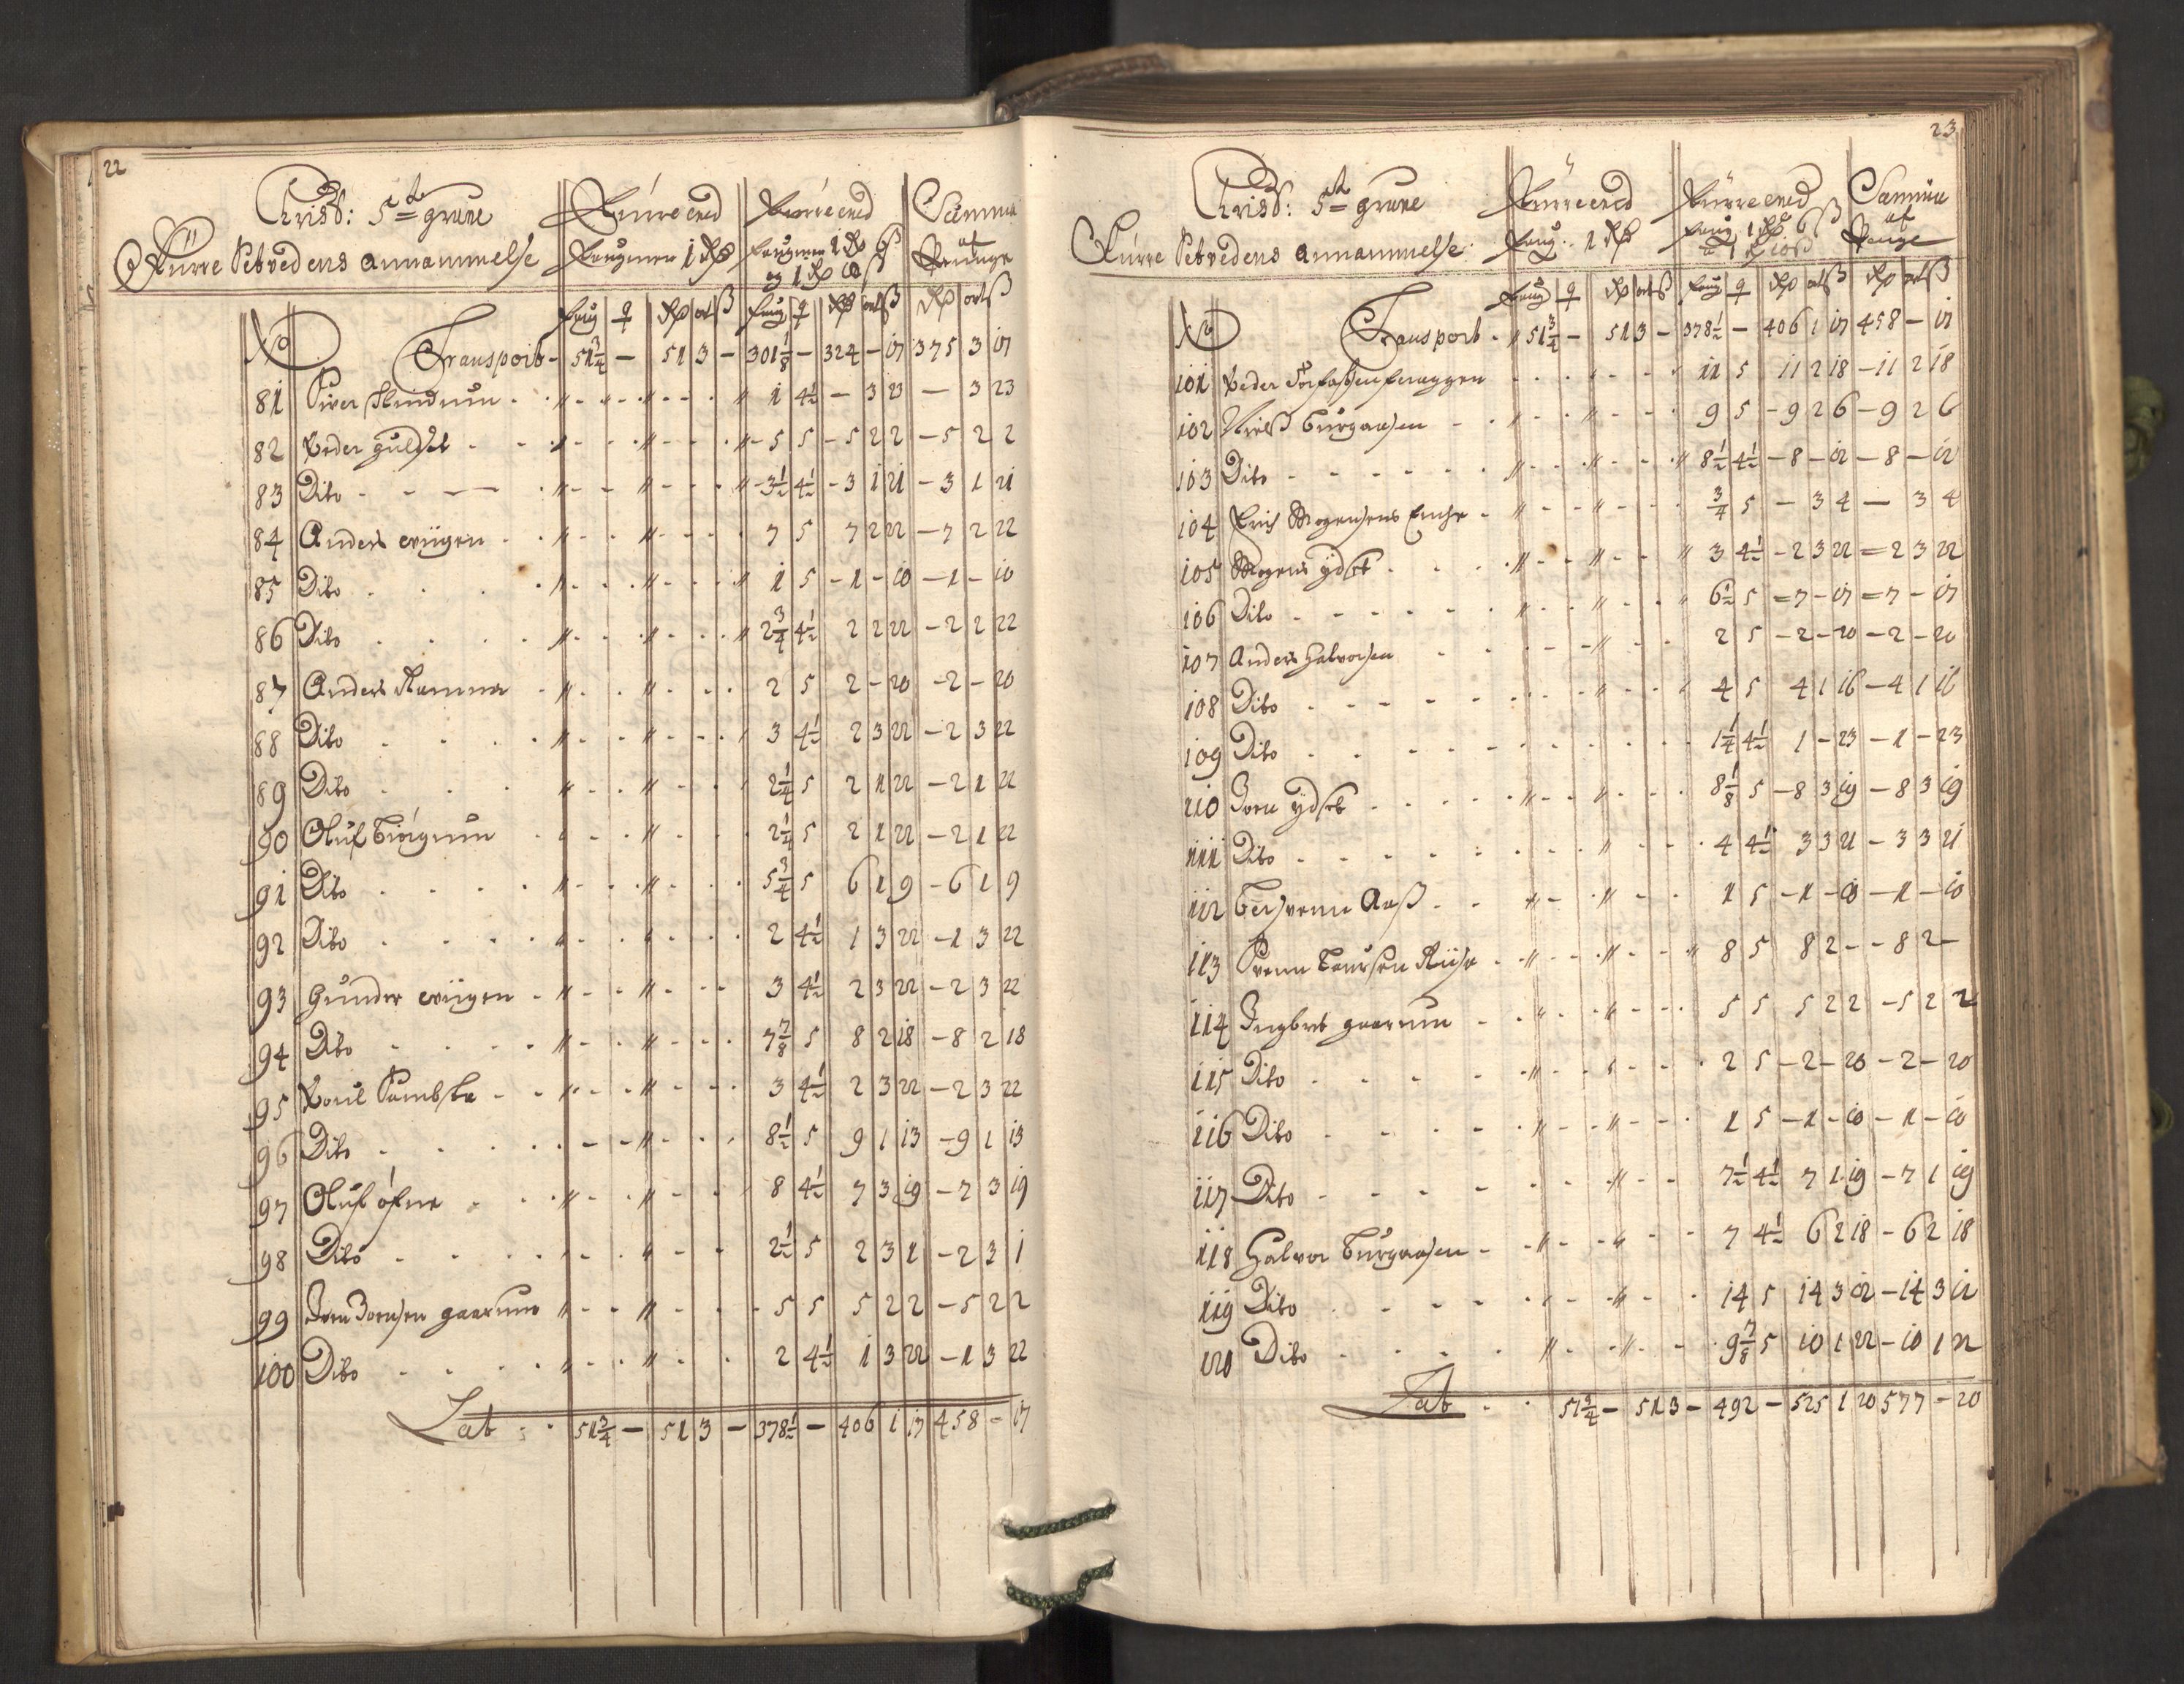 22
Christ: 5te grure
Kürre Setvedens Annammelse
Kürre ved
faugnen 1 Rdr
Kürre ved
faugnen 1 Rdr 6 ß
og 1 Rdr 10 ß
Summa
af
Penuge
No faug q Rdr ort ß faug q Rdr ort ß Rdr ort ß
Transport - 51 3/4 - 51 3 - 301 1/8 - 324 - 17 375 3 17
81 Siver - - - 1 4 1/2 - 3 23 - 3 23
82 Peder - - - 5 5 - 5 2 2 - 5 2 2
83 Dito - - - 3 1/2 4 1/2 - 3 1 21 - 3 1 21
84 Anders - - - 7 5 7 2 22 - 7 2 22
85 Dito - - - 1 5 - 1 - 10 - 1 - 10
86 Dito - - - 2 3/4 4 1/2 2 2 22 - 2 2 22
87 Anders Ramma - - - 2 5 2 - 20 - 2 - 20
88 Dito - - - 3 4 1/2 2 3 22 - 2 3 22
89 Dito - - - 2 1/4 5 2 1 22 - 2 1 22
90 Oluf - - - 2 1/4 5 2 1 22 - 2 1 22
91 Dito - - - 5 3/4 5 6 1 9 - 6 1 9
92 Dito - - - 2 4 1/2 1 3 22 - 1 3 22
93 Gunder - - - 3 4 1/2 2 3 22 - 2 3 22
94 Dito - - - 7 7/8 5 8 2 18 - 8 2 18
95 Poul - - - 3 4 1/2 2 3 22 - 2 3 22
96 Dito - - - 8 1/2 5 9 1 13 - 9 1 13
97 Oluf ófne - - - 8 4 1/2 7 3 19 - 7 3 19
98 Dito - - - 2 1/2 5 2 3 1 - 2 3 1
99 Joen Joensen gaarum - - - 5 5 5 2 2 - 5 2 2
100 Dito - - - 2 4 1/2 1 3 22 - 1 3 22
Lat - 51 3/4 - 51 3 - 378 1/2 - 406 1 17 458 - 17
23
Christ: 5te grure
Kürre Setvedens Annammelse
Kürre ved
faug: 1 Rdr
Kürre ved
faug 1 Rdr 6 ß
a 1 Rdr 10 ß
Summa
af
Penuge
No faug q Rdr ort ß faug q Rdr ort ß Rdr ort ß
Transport - 51 3/4 - 51 3 - 378 1/2 - 406 1 17 458 - 17
101 Peder - - - 11 5 11 2 18 - 11 2 18
102 Niels Burgaasen - - - 9 5 - 9 2 6 - 9 2 6
103 Dito - - - 8 1/2 4 1/2 - 8 - 12 - 8 - 12
104 Erich Mogensens Encke - - - 3/4 5 - 3 4 - 3 4
105 Mogens ydset - - - 3 4 1/2 - 2 3 22 = 2 3 22
106 Dito - - - 6 1/2 5 = 7 - 17 = 7 - 17
107 Anders Halvorsen - - - 2 5 - 2 - 20 - 2 - 20
108 Dito - - - 4 5 4 1 16 - 4 1 16
109 Dito - - - 1 1/4 4 1/2 1 - 23 - 1 - 23
110 Joen ydset - - - 8 1/8 5 - 8 3 19 - 8 3 19
111 Dito - - - 4 4 1/2 3 3 21 - 3 3 21
112 Aaß - - - 1 5 - 1 - 10 - 1 - 10
113 Svenn - - - 8 5 8 2 - - 8 2 -
114 Ingbret gaarum - - - 5 5 5 2 2 - 5 2 2
115 Dito - - - 2 5 - 2 - 20 - 2 - 20
116 Dito - - - 1 5 - 1 - 10 - 1 - 10
117 Dito - - - 7 1/2 4 1/2 7 1 19 - 7 1 19
118 Halvor Burgaasen - - - 7 4 1/2 6 2 18 - 6 2 18
119 Dito - - - 14 5 14 3 12 - 14 3 12
120 Dito - - - 9 7/8 5 10 1 22 - 10 1 22
Lat - - 51 3/4 - 51 3 - 492 - 525 1 20 577 - 20